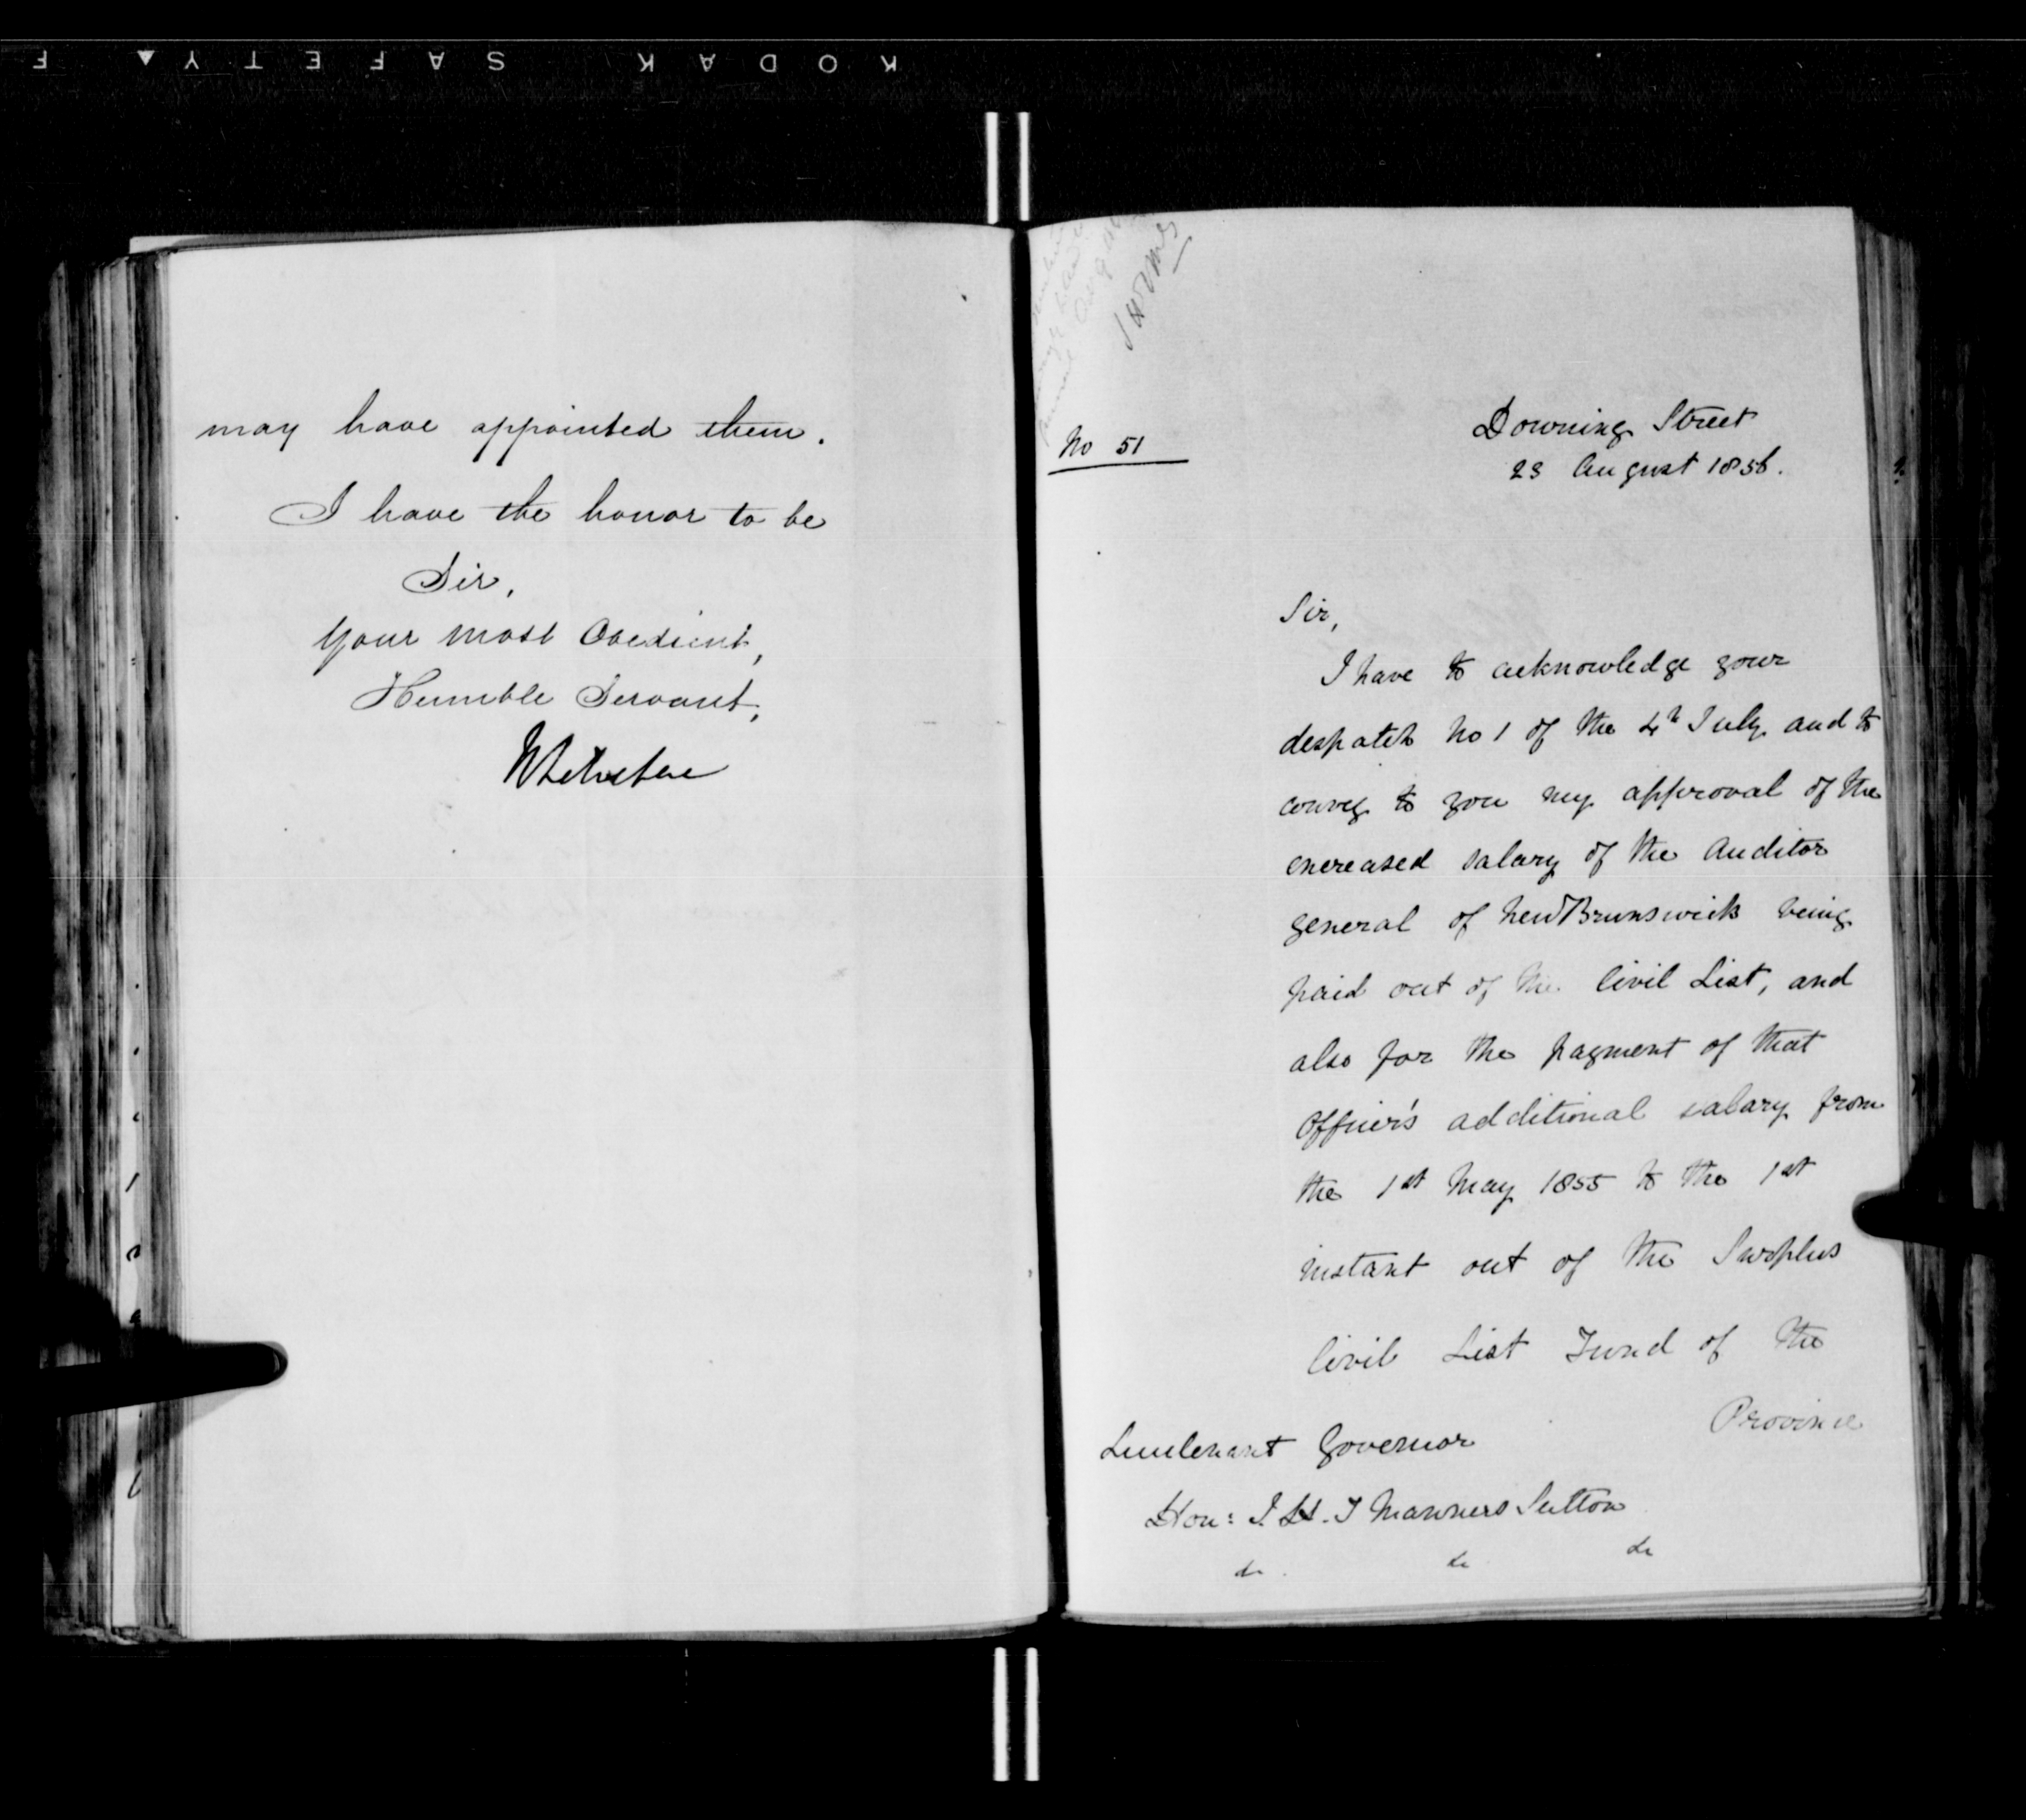 KODAK SAFETY F
may have appointed them.
I have the honor to be
Sir,
Your most Obedient,
Humble Servant,
JHTMS
No 51
Downing Street
23 August 1856.
Sir,
I have to acknowledge your
despatch No 1 of the 4th July and to
convey to you my approval of the
encreased salary of the Auditor
general of New Brunswick being
paid out of the Civil List, and
also for the payment of that
Officer's additional salary from
the 1st May 1855 to the 1st
instant out of the Surplus
Civil List Fund of the
Province
Lieutenant Governor
Hon: J. H. T Manners Sutton
&c &c &c